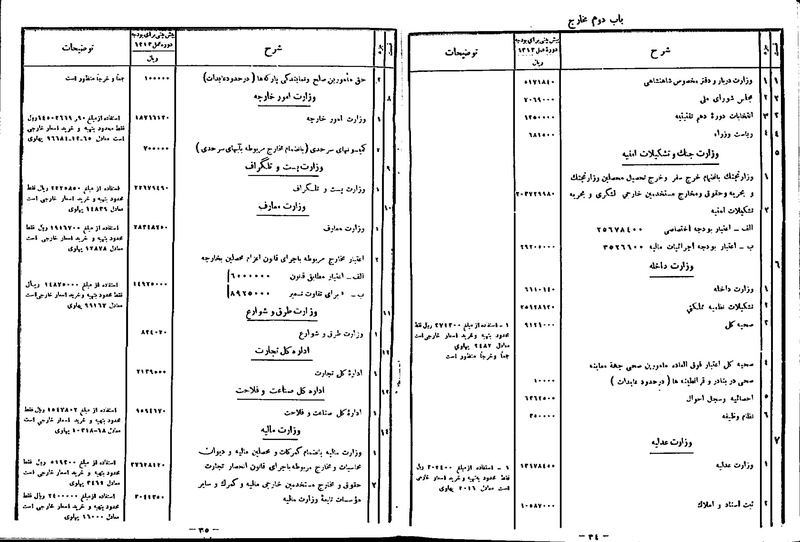 باب دوم مخارج
شرح
پیش بینی برای بودجه
دوره عمل ۱۳۱۳
ریال
توضیحات
۱ ۱ وزارت دربار و دفتر مخصوص شاهنشاهی ۵۱۷۱۸۴۰
۲ ۲ مجلس شورای ملی ۷۰۶۹۰۰۰
۳ ۳ انتخابات دورهٔ دهم تقنینیه ۱۲۵۰۰۰۰
۴ ۴ ریاست وزراء ۶۸۱۰۰۰
۵ وزارت جنگ و تشکیلات امنیه
۱ وزارتجنگ بانضمام خرج سفر و خرج تحصیل محصلین وزارتجنگ
و بحریه و حقوق و مخارج مستخدمین خارجی لشگری و بحریه ۲۰۳۲۲۹۹۸۰
۲ تشکیلات امنیه
الف - اعتبار بودجه اختصاصی ۲۵۶۷۸۴۰۰
ب - اعتبار بودجه اجرائیات مالیه ۳۵۲۶۶۰۰ ۲۹۲۰۵۰۰۰
۶ وزارت داخله
۱ وزارت داخله ۶۶۱۰۱۴۰
۲ تشکیلات نظمیه مملکتی ۲۵۱۲۸۱۲۰
۳ صحیه کل ۹۱۲۱۰۰۰
۱ - استفاده از مبلغ ۳۷۴۳۰۰ ریال فقط
محدود بتهیه و خرید اسعار خارجی است
معادل ۲۴۸۲ پهلوی
جمعاً و خرجاً منظور است
۴ صحیه کل اعتبار فوق العاده مأمورین صحی جهة معاینه
صحی در بنادر و قرانطینه ها (در حدود عایدات) ۱۰۰۰۰
۵ احصائیه و سجل احوال ۶۲۶۵۰۰۰
۶ نظام وظیفه ۳۵۰۰۰۰۰
۷ وزارت عدلیه
۱ وزارت عدلیه ۱۳۱۷۸۴۵۰
۱ - استفاده از مبلغ ۳۰۲۴۰۰ ریال
فقط محدود بتهیه و خرید اسعار خارجی
است معادل ۲۰۱۶ پهلوی
۲ ثبت اسناد و املاک ۱۰۵۸۷۰۰۰
- ۳۴ -
شرح
پیش بینی برای بودجه
دوره عمل ۱۳۱۳
ریال
توضیحات
۲ حق مأمورین صلح و نمایندگی پارکه ها (در حدود عایدات) ۱۰۰۰۰۰ جمعاً و خرجاً منظور است
۸ وزارت امور خارجه
۱ وزارت امور خارجه ۱۸۷۶۱۱۲۰
فقط محدود بتهیه و خرید اسعار خارجی
۲ کمیسونهای سرحدی (بانضمام مخارج مربوطه بآبهای سرحدی) ۷۰۰۰۰۰
۹ وزارت پست و تلگراف
۱ وزارت پست و تلگراف ۲۲۶۷۶۴۹۰
استفاده از مبلغ ۲۲۲۵۸۵۰ ریال فقط
محدود بتهیه و خرید اسعار خارجی است
معادل ۱۴۸۳۹ پهلوی
۱۰ وزارت معارف
۱ وزارت معارف ۲۸۳۴۸۲۵۰
استفاده از مبلغ ۱۹۱۶۷۰۰ ریال فقط
محدود بتهیه و خرید اسعار خارجی است
معادل ۱۲۸۷۸ پهلوی
۲ اعتبار مخارج مربوطه باجرای قانون اعزام محصلین بخارجه
الف - اعتبار مطابق قانون ۶۰۰۰۰۰۰
ب - « برای تفاوت تسعیر ۸۹۲۵۰۰۰ ۱۴۹۲۵۰۰۰
استفاده از مبلغ ۱۴۸۷۵۰۰۰ ریال
فقط محدود بتهیه و خرید اسعار خارجی است
معادل ۹۹۱۶۷ پهلوی
۱۱ وزارت طرق و شوارع
۱ وزارت طرق و شوارع ۸۲۴۰۲۰
۱۲ اداره کل تجارت
۱ ادارهٔ کل تجارت ۲۱۲۹۵۰۰
۱۳ اداره کل صناعت و فلاحت
۱ ادارهٔ کل صناعت و فلاحت ۹۵۹۴۶۷۰
استفاده از مبلغ ۱۵۴۷۸۰۲ ریال فقط
محدود بتهیه و خرید اسعار خارجی است
معادل ۱۰۳۱۸-۶۸ پهلوی
۱۴ وزارت مالیه
۱ وزارت مالیه بانضمام گمرکات و محصلین مالیه و دیوان
محاسبات و مخارج مربوطه باجرای قانون انحصار تجارت ۲۷۶۲۸۴۲۰
استفاده از مبلغ ۵۱۹۳۰۰ ریال فقط
محدود بتهیه و خرید اسعار خارجی است
معادل ۳۴۶۲ پهلوی
۲ حقوق و مخارج مستخدمین خارجی مالیه و گمرک و سایر
مؤسسات تابعهٔ وزارت مالیه ۳۰۴۱۳۵۰
استفاده از مبلغ ۲۴۰۰۰۰۰ ریال فقط
محدود بتهیه و خرید اسعار خارجی است
معادل ۱۶۰۰۰ پهلوی
- ۳۵ -